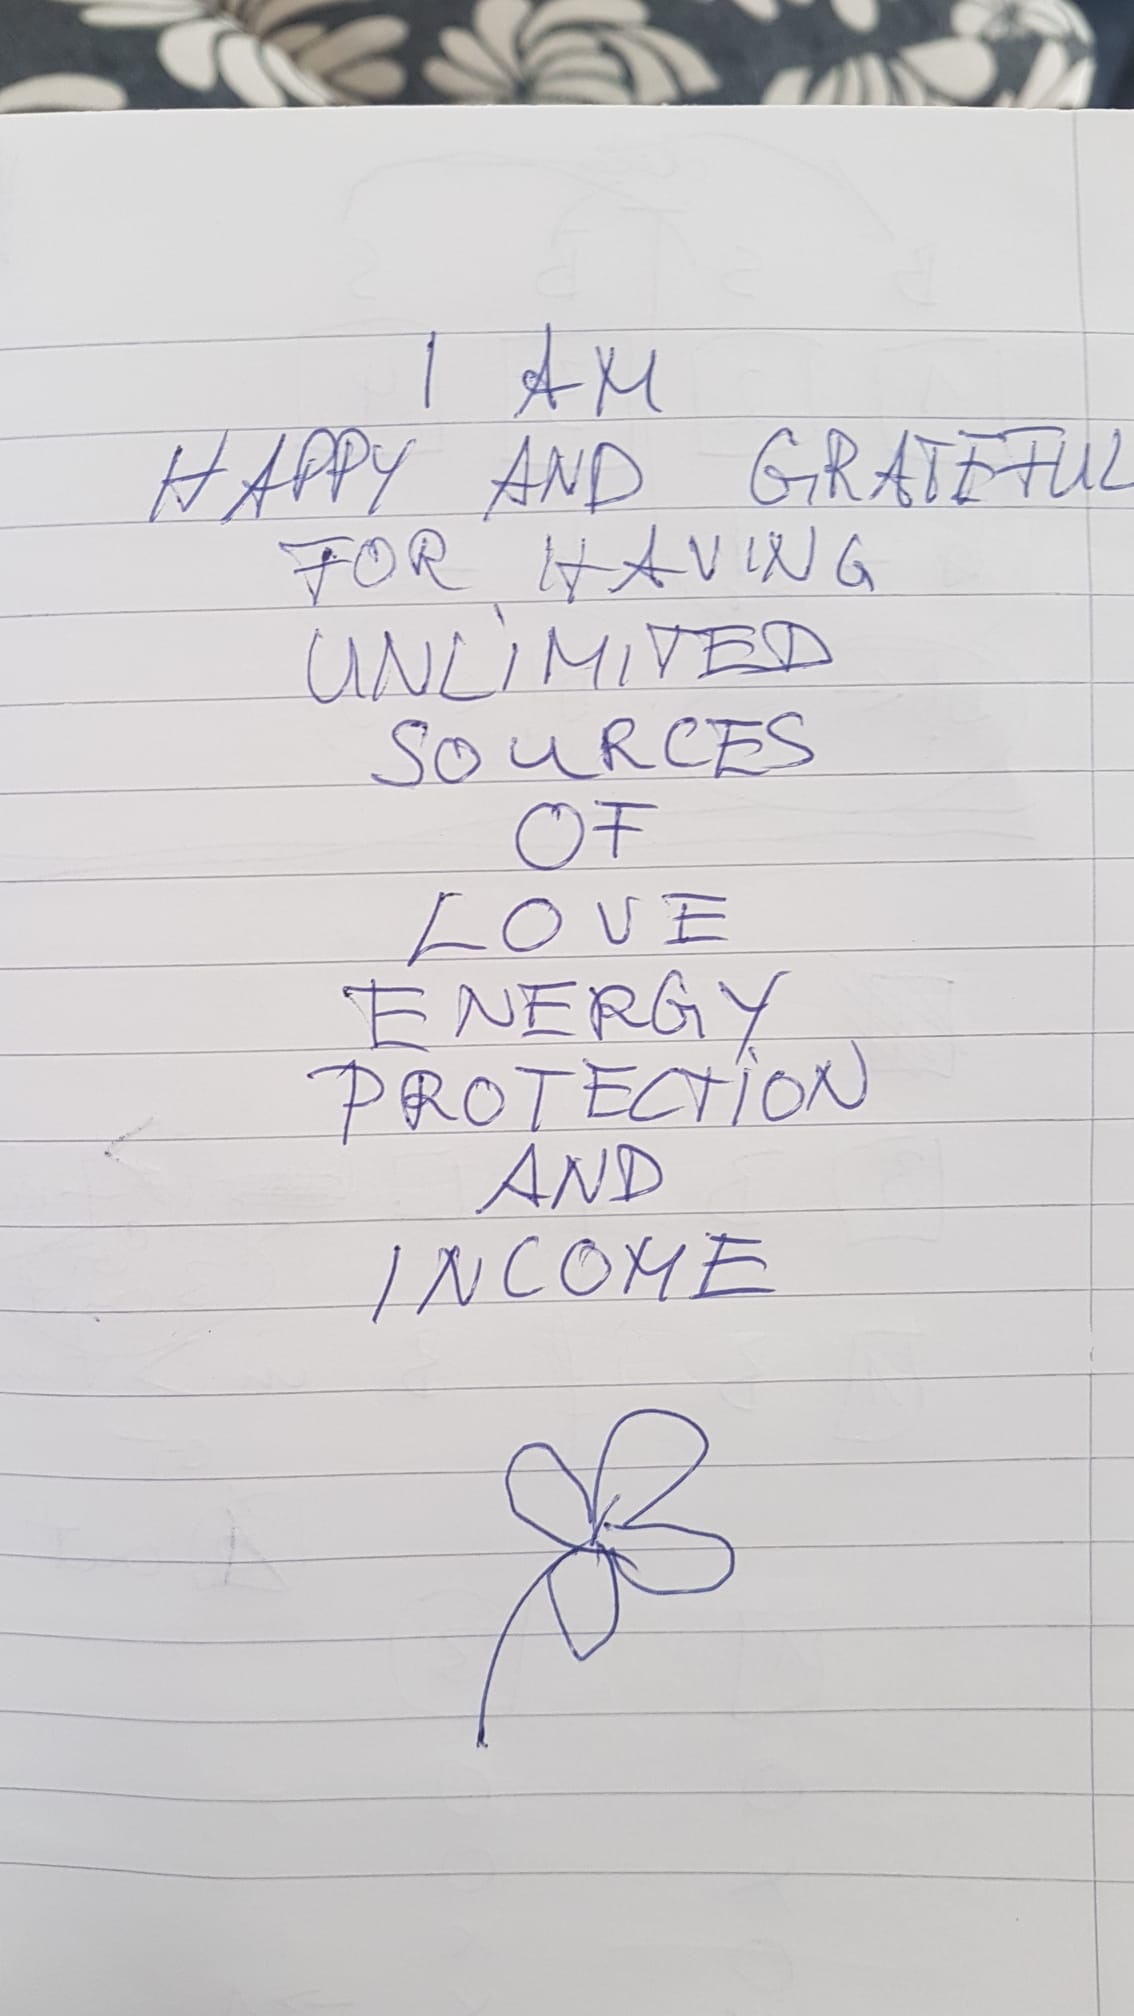 I AM
HAPPY AND GRATEFUL
FOR HAVING
UNLIMITED
SOURCES
OF
LOVE
ENERGY
PROTECTION
AND
INCOME